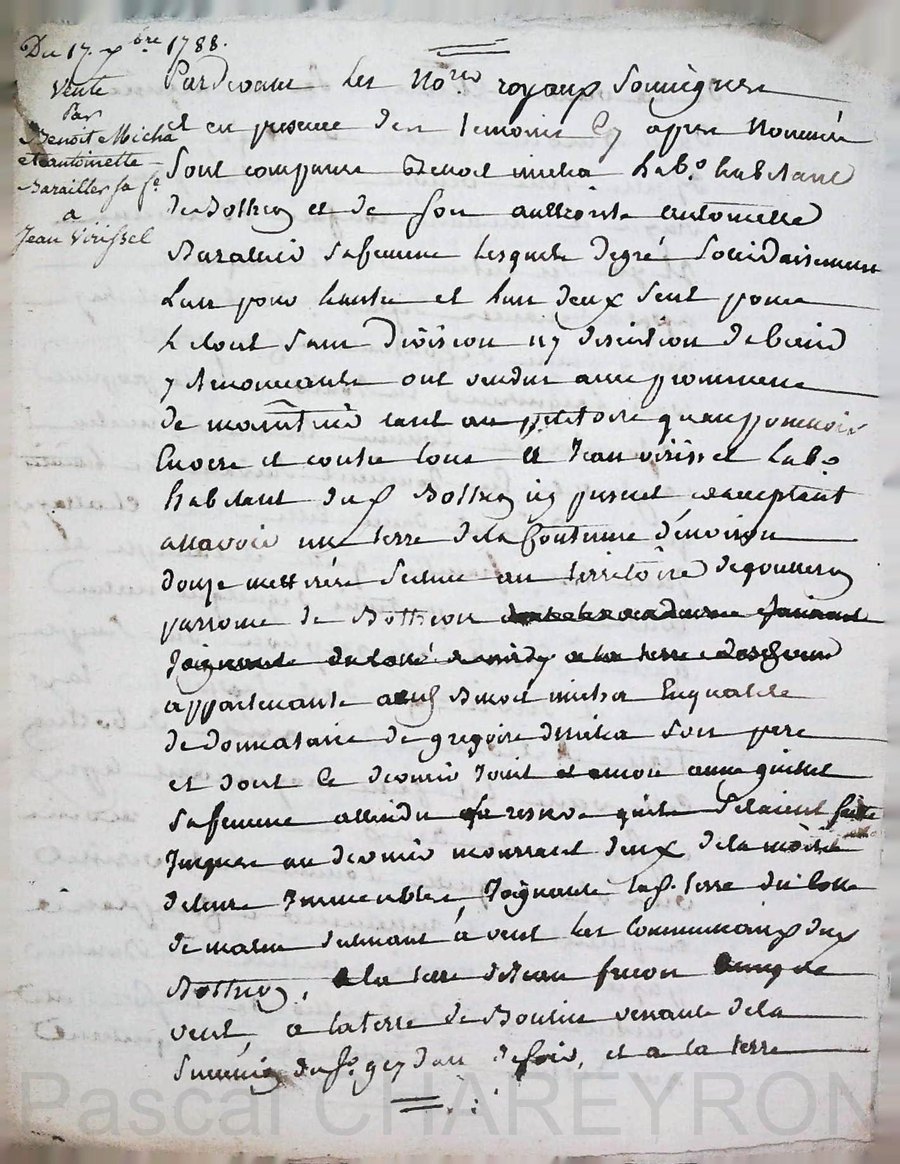 Du 17. xbre 1788.
Vente
Par
Benoit Micha
et antoinette
Barailler sa fe
a
Jean Virissel
Pardevant les No.res royaux Soussignes
et en presence des temoins cy apres Nommés
Sont comparus Benoit micha Lab.o habitant
de Botheon et de son authorité antoinette
Baralier sa femme lesquels de gré Solidairement
lun pour lautre et lun deux seul pour
le tout sans division ny discution de biens
y Renonceants ont vendu avec promesse
de maintenir tant au petitoire quau possessoire
Envers et contre tous a Jean virissel Lab.o
habitant dud Botheon icy present acceptant
assavoir une terre de la Contenue d'environ
douze metterées Scituee au territoire de
parroisse de Botheon
Joignante du cotté de midy a la terre
appartenante aud Benoit micha En qualité
de donnataire de gregoire micha son pere
et dont le dernier Jouit et anne
sa femme attendu la reserve quils Sétaient faitte
Jusques au dernier mourrant deux de la moitié
de leurs Immeubles Joignante lad. terre du cotté
de matin declinant à vent les Communeaux dud
Botheon, a la terre de Jean
vent, a la terre de venante de la
du Sr de soir, et a la terre
Pascal CHAREYRON